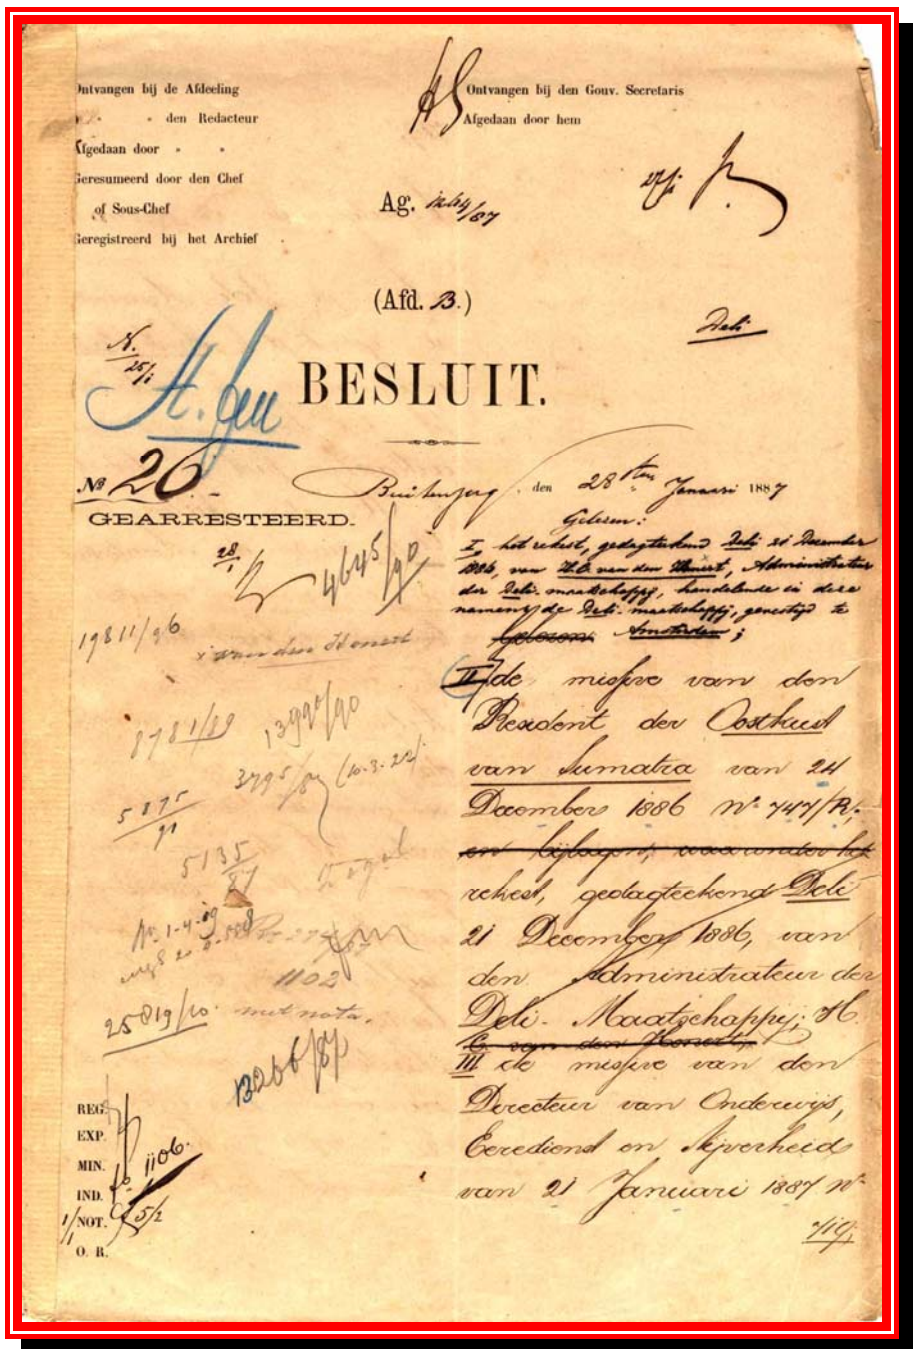 Ontvangen bij de Afdeeling
" " den Redacteur
Afgedaan door " "
Geresumeerd door den Chef
of Sous-Chef
Geregistreerd bij het Archief
Ontvangen bij den Gouv. Secretaris
Afgedaan door hem
Ag. 1264/87
(Afd. B.)
Deli
N.
25/1
BESLUIT.
No 26
GEARRESTEERD.
28/1
Buitenzorg, den 28sten Januari 1887
Gelezen:
I, het rekest, gedagteekend Deli 21 December
1886, van H.C. van den Honert, Administrateur
der Deli-maatschappij, handelende in deze
namens de Deli-maatschappij, gevestigd te
Gelezen Amsterdam;
II, de missive van den
Resident der Oostkust
van Sumatra van 24
December 1886 No 747/R;
en bijlagen, waaronder het
rekest, gedagteekend Deli
21 December 1886, van
den Administrateur der
Deli-Maatschappij, H.
C. van den Honert,
III de missive van den
Directeur van Onderwijs,
Eeredienst en Nijverheid
van 21 Januari 1887 No
4645/90
19811/96
van den Honert
8781/89
13990/90
3795/87 (10-3-22)
5875/91
5135/87
1102
25819/10 met nota.
13266/87
REG.
EXP.
MIN. 1106.
IND.
1/1 NOT. 5/2
O. R.